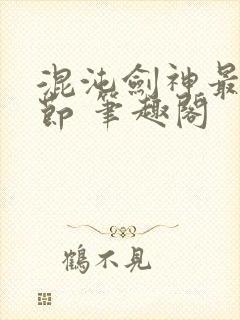 混沌劍神最
節 筆趣閣
鶴不見